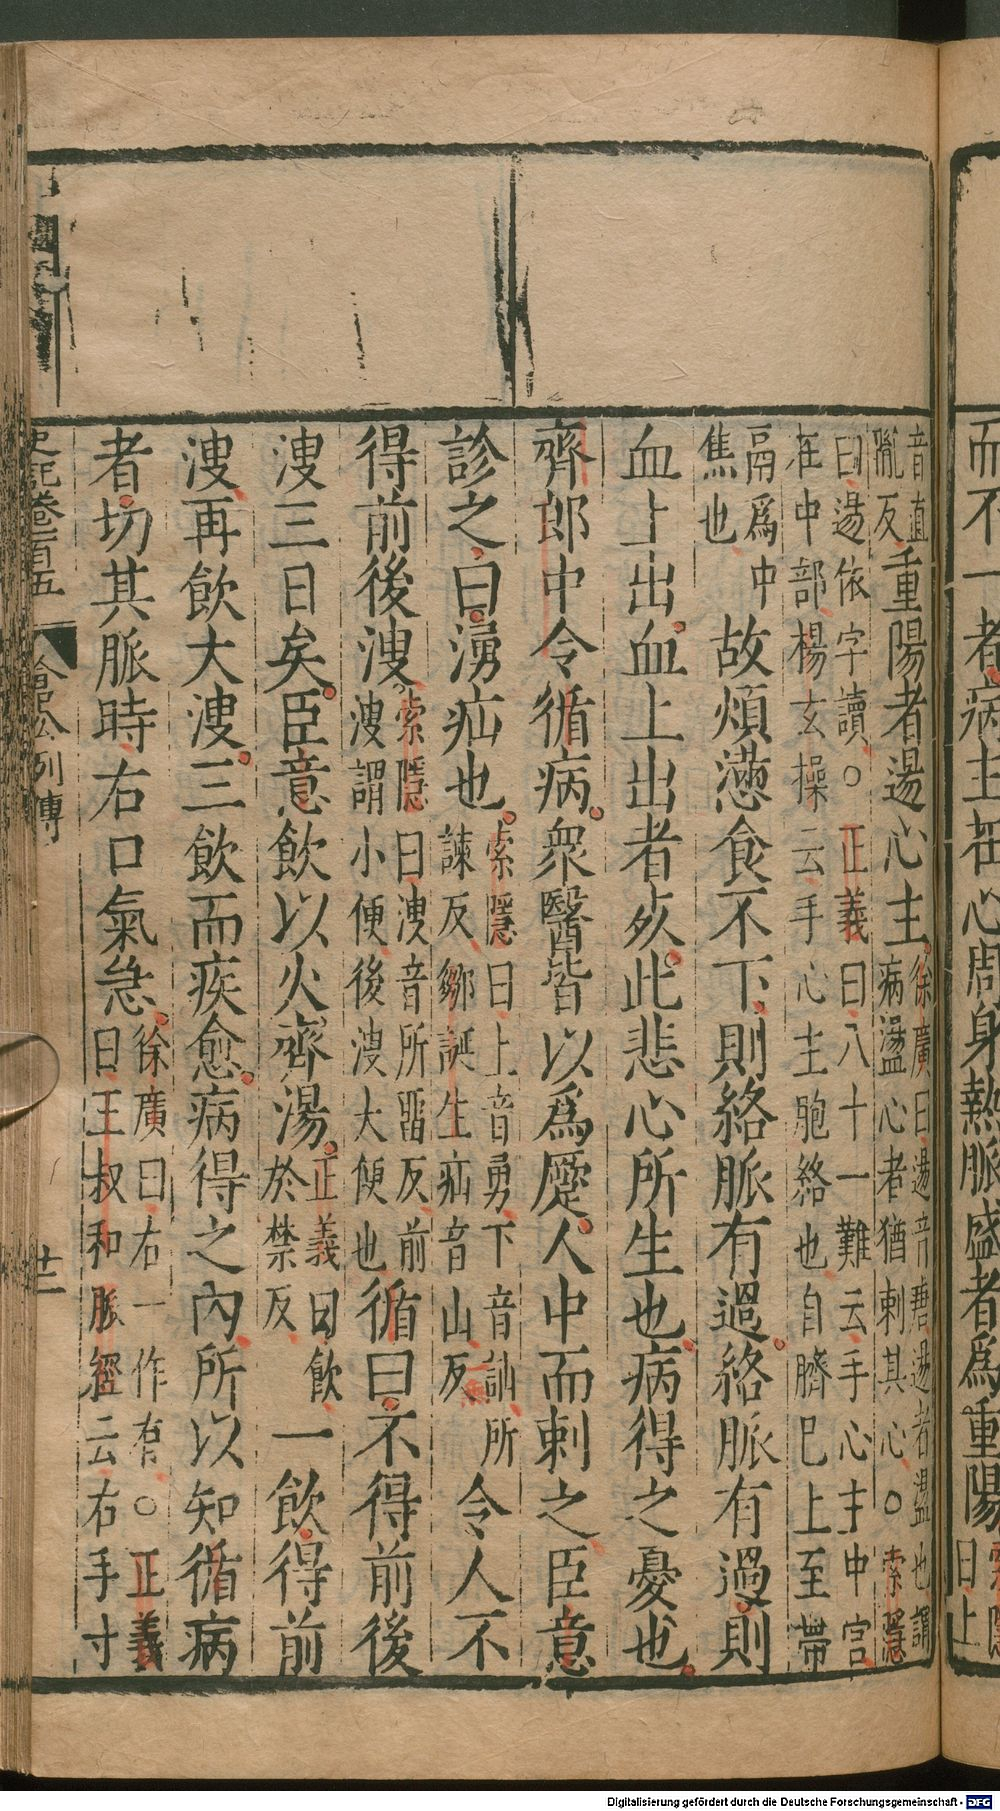 而不一者病主在心周身熱脈盛者爲重陽索隱曰上
音直謂
隴反重陽者逿心主徐廣曰逿音唐逿者盪也謂病盪心者猶刺其心○索隱
曰逿依字讀○正義曰八十一難云手心主中宮
在中部楊玄操云手心主胞絡也自臍已上至帶
鬲爲中
焦也故煩懣食不下則絡脈有過絡脈有過則
血上出血上出者死此悲心所生也病得之憂也
齊郎中令循病衆醫皆以爲蹷人中而刺之臣意
診之曰湧疝也索隱曰上音勇下音訕所諫反鄒誕生疝音山反令人不
得前後溲索隱曰溲音所畱反前溲謂小便後溲大便也循曰不得前後
溲三日矣臣意飲以火齊湯正義曰飲於禁反一飲得前
溲再飲大溲三飲而疾愈病得之內所以知循病
者切其脈時右口氣急徐廣曰右一作有○正義曰王叔和脈經云右手寸
史記卷一百五 倉公列傳 廿二
Digitalisierung gefördert durch die Deutsche Forschungsgemeinschaft - DFG